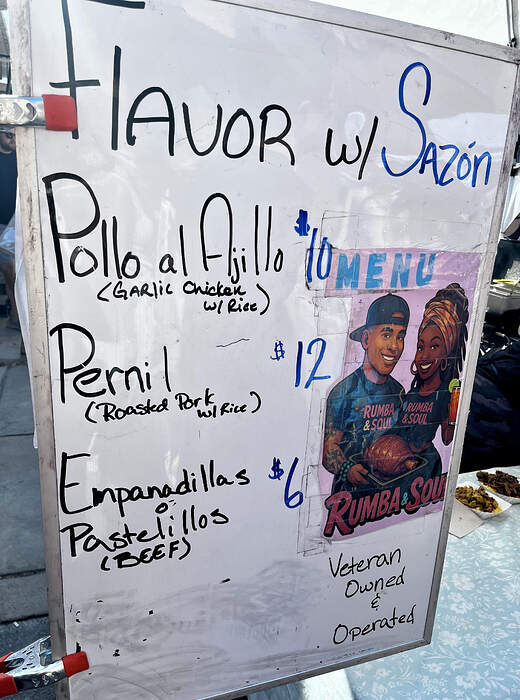 Flavor w/ Sazón
Pollo al Ajillo $10
(Garlic Chicken
w/ Rice)
Pernil $12
(Roasted Pork
w/ Rice)
Empanadillas $6
o
Pastelillos
(BEEF)
MENU
RUMBA
& SOUL
RUMBA
& SOUL
RUMBA & SOUL
Veteran
Owned
&
Operated